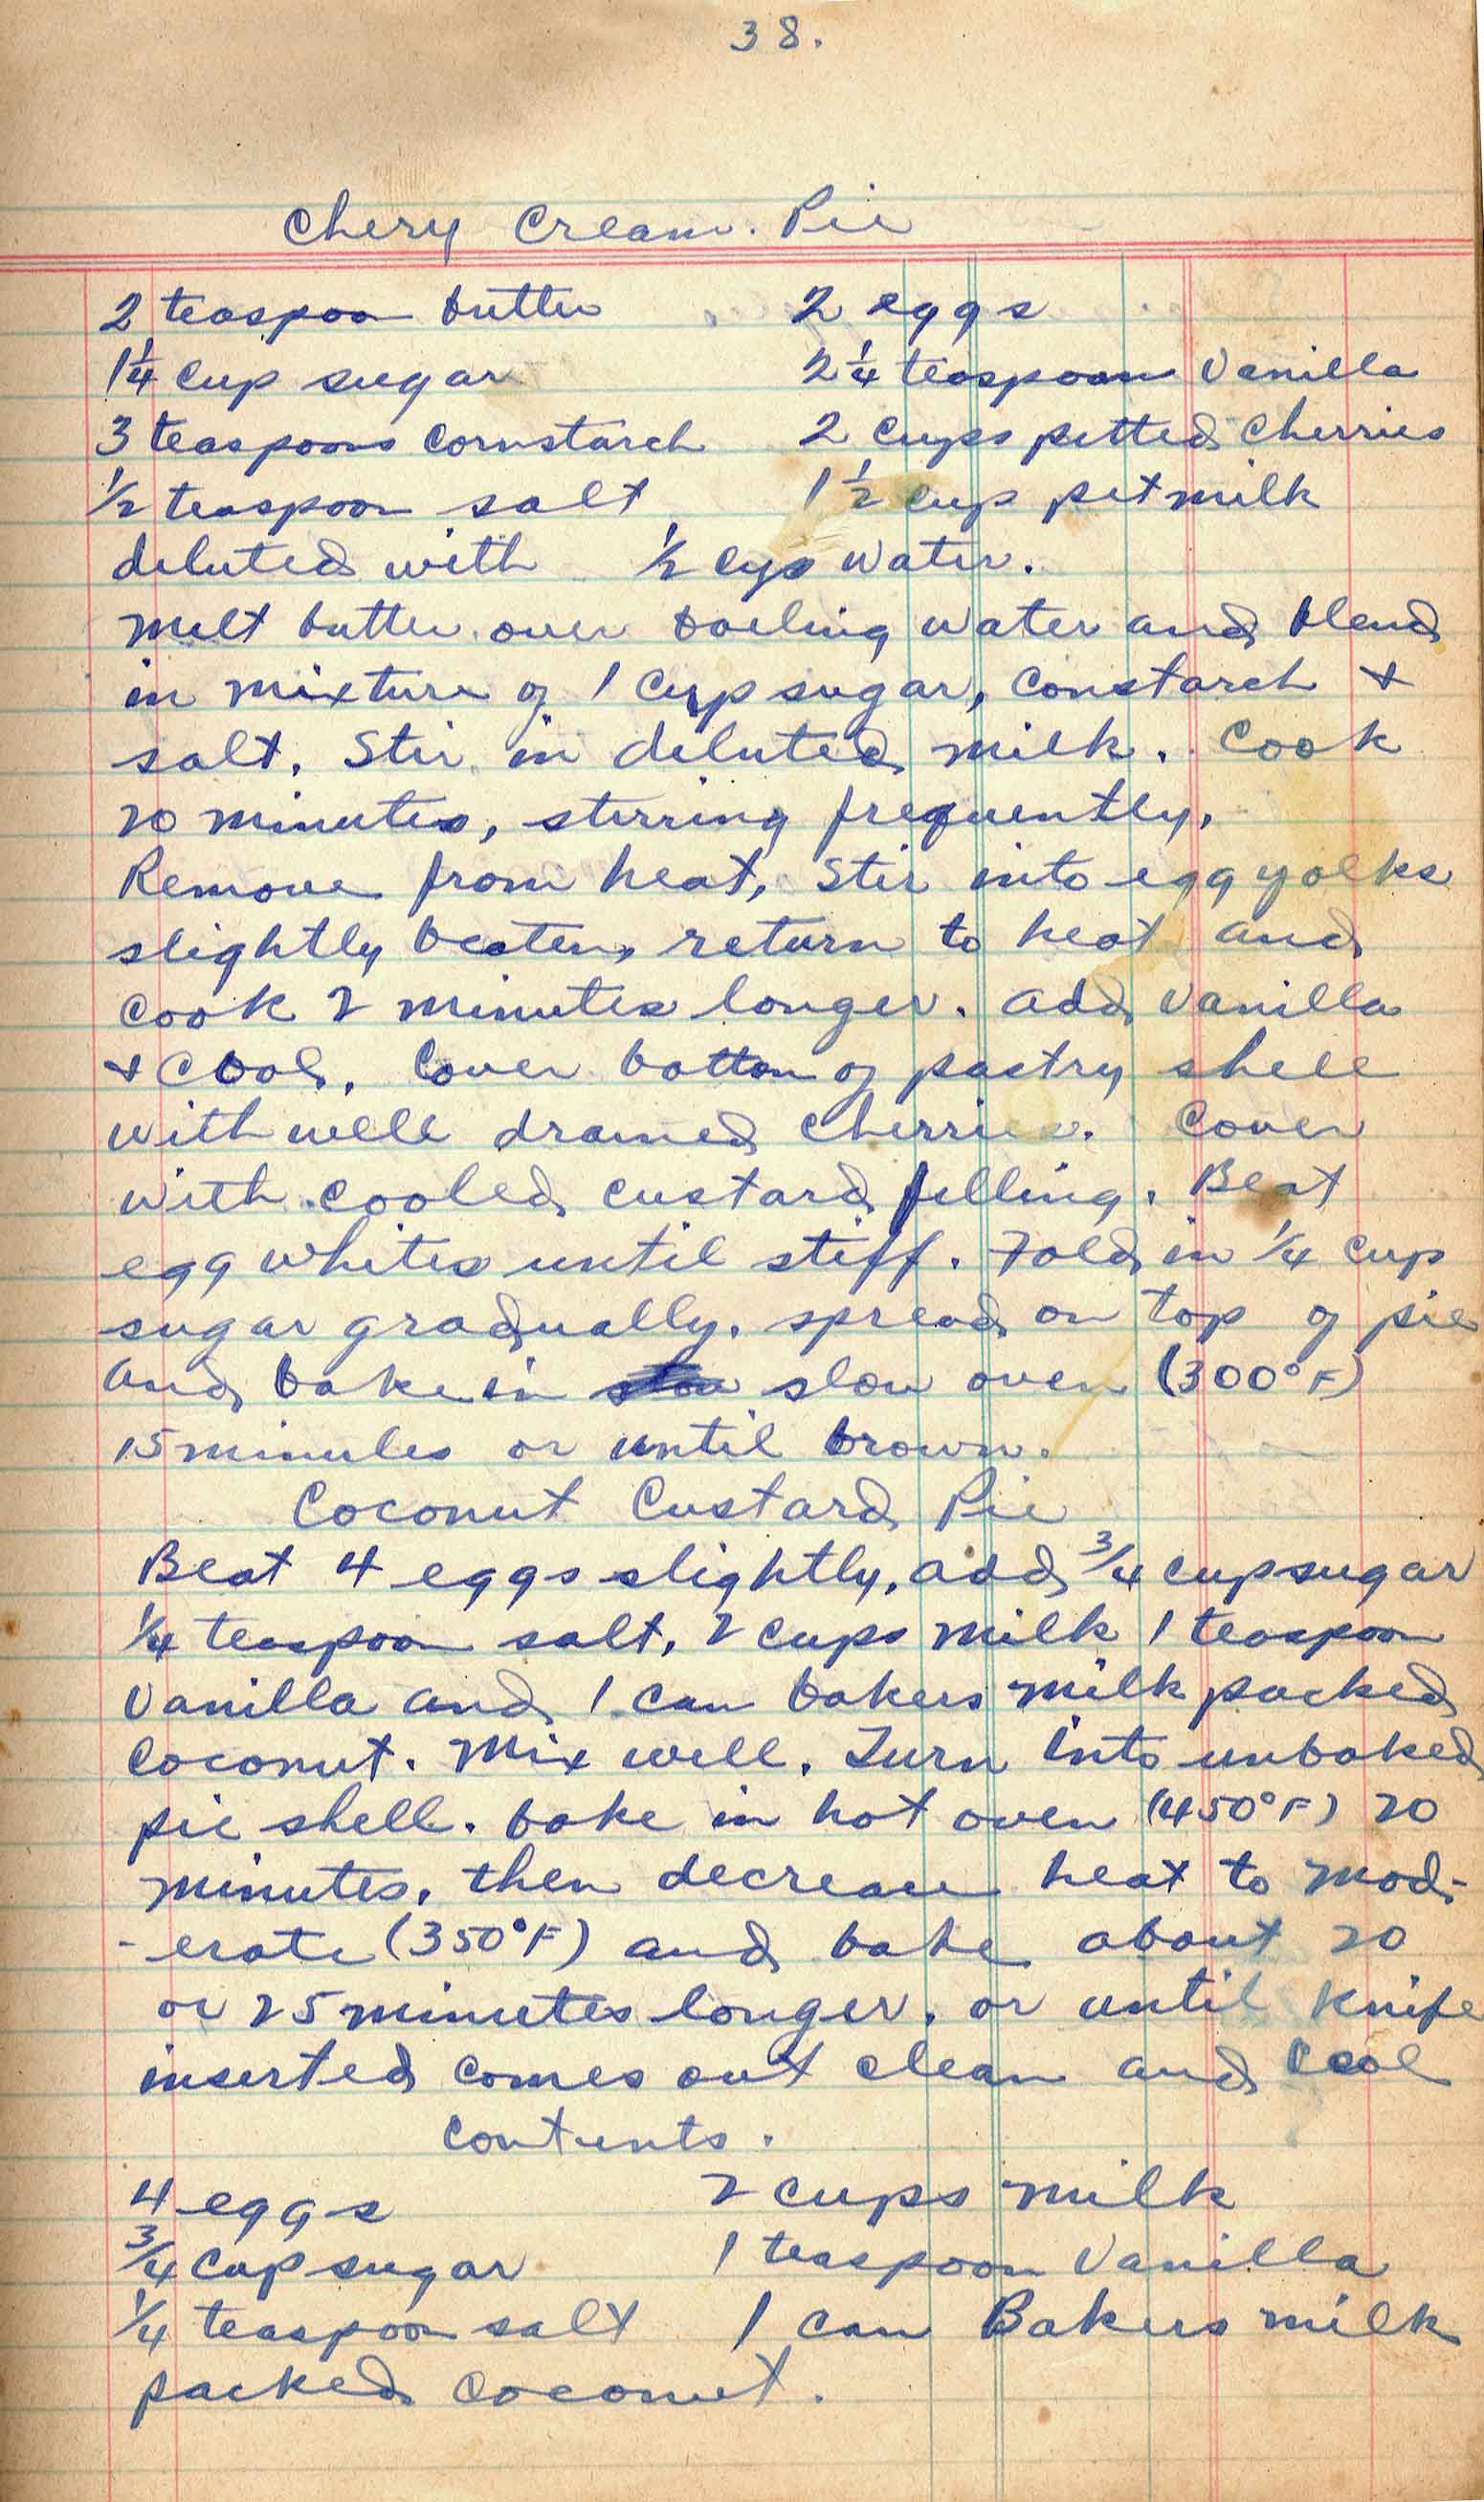 38.
Chery Cream. Pie
2 teaspoon butter 2 eggs
1 1/4 cup sugar 2 1/4 teaspoon Vanilla
3 teaspoons Cornstarch 2 cups pitted Cherries
1/2 teaspoon salt 1 1/2 cup pet milk
diluted with 1/2 cups water.
Melt butter over boiling water and blend
in mixture of 1 cup sugar, Constarch &
salt. Stir in diluted milk. Cook
20 minutes, stirring frequently.
Remove from heat, Stir into egg yolks
slightly beaten, return to heat and
cook 2 minutes longer. add Vanilla
& Cool. Cover bottom of pastry shell
with well drained Cherries. Cover
with cooled custard filling. Beat
egg whites until stiff. Fold in 1/4 cup
sugar gradually. spread on top of pie
and bake in slow oven (300°F)
15 minutes or until brown.
Coconut Custard Pie
Beat 4 eggs slightly, add 3/4 cup sugar
1/4 teaspoon salt, 2 cups milk 1 teaspoon
Vanilla and 1 can bakers milk packed
Coconut. Mix well. Turn into unbaked
pie shell. bake in hot oven (450°F) 20
minutes. then decrease heat to mod-
-erate (350°F) and bake about 20
or 25 minutes longer. or until knife
inserted comes out clean and Cool
Contents.
4 eggs 2 cups milk
3/4 cup sugar 1 teaspoon Vanilla
1/4 teaspoon salt 1 can Bakers milk
packed coconut.